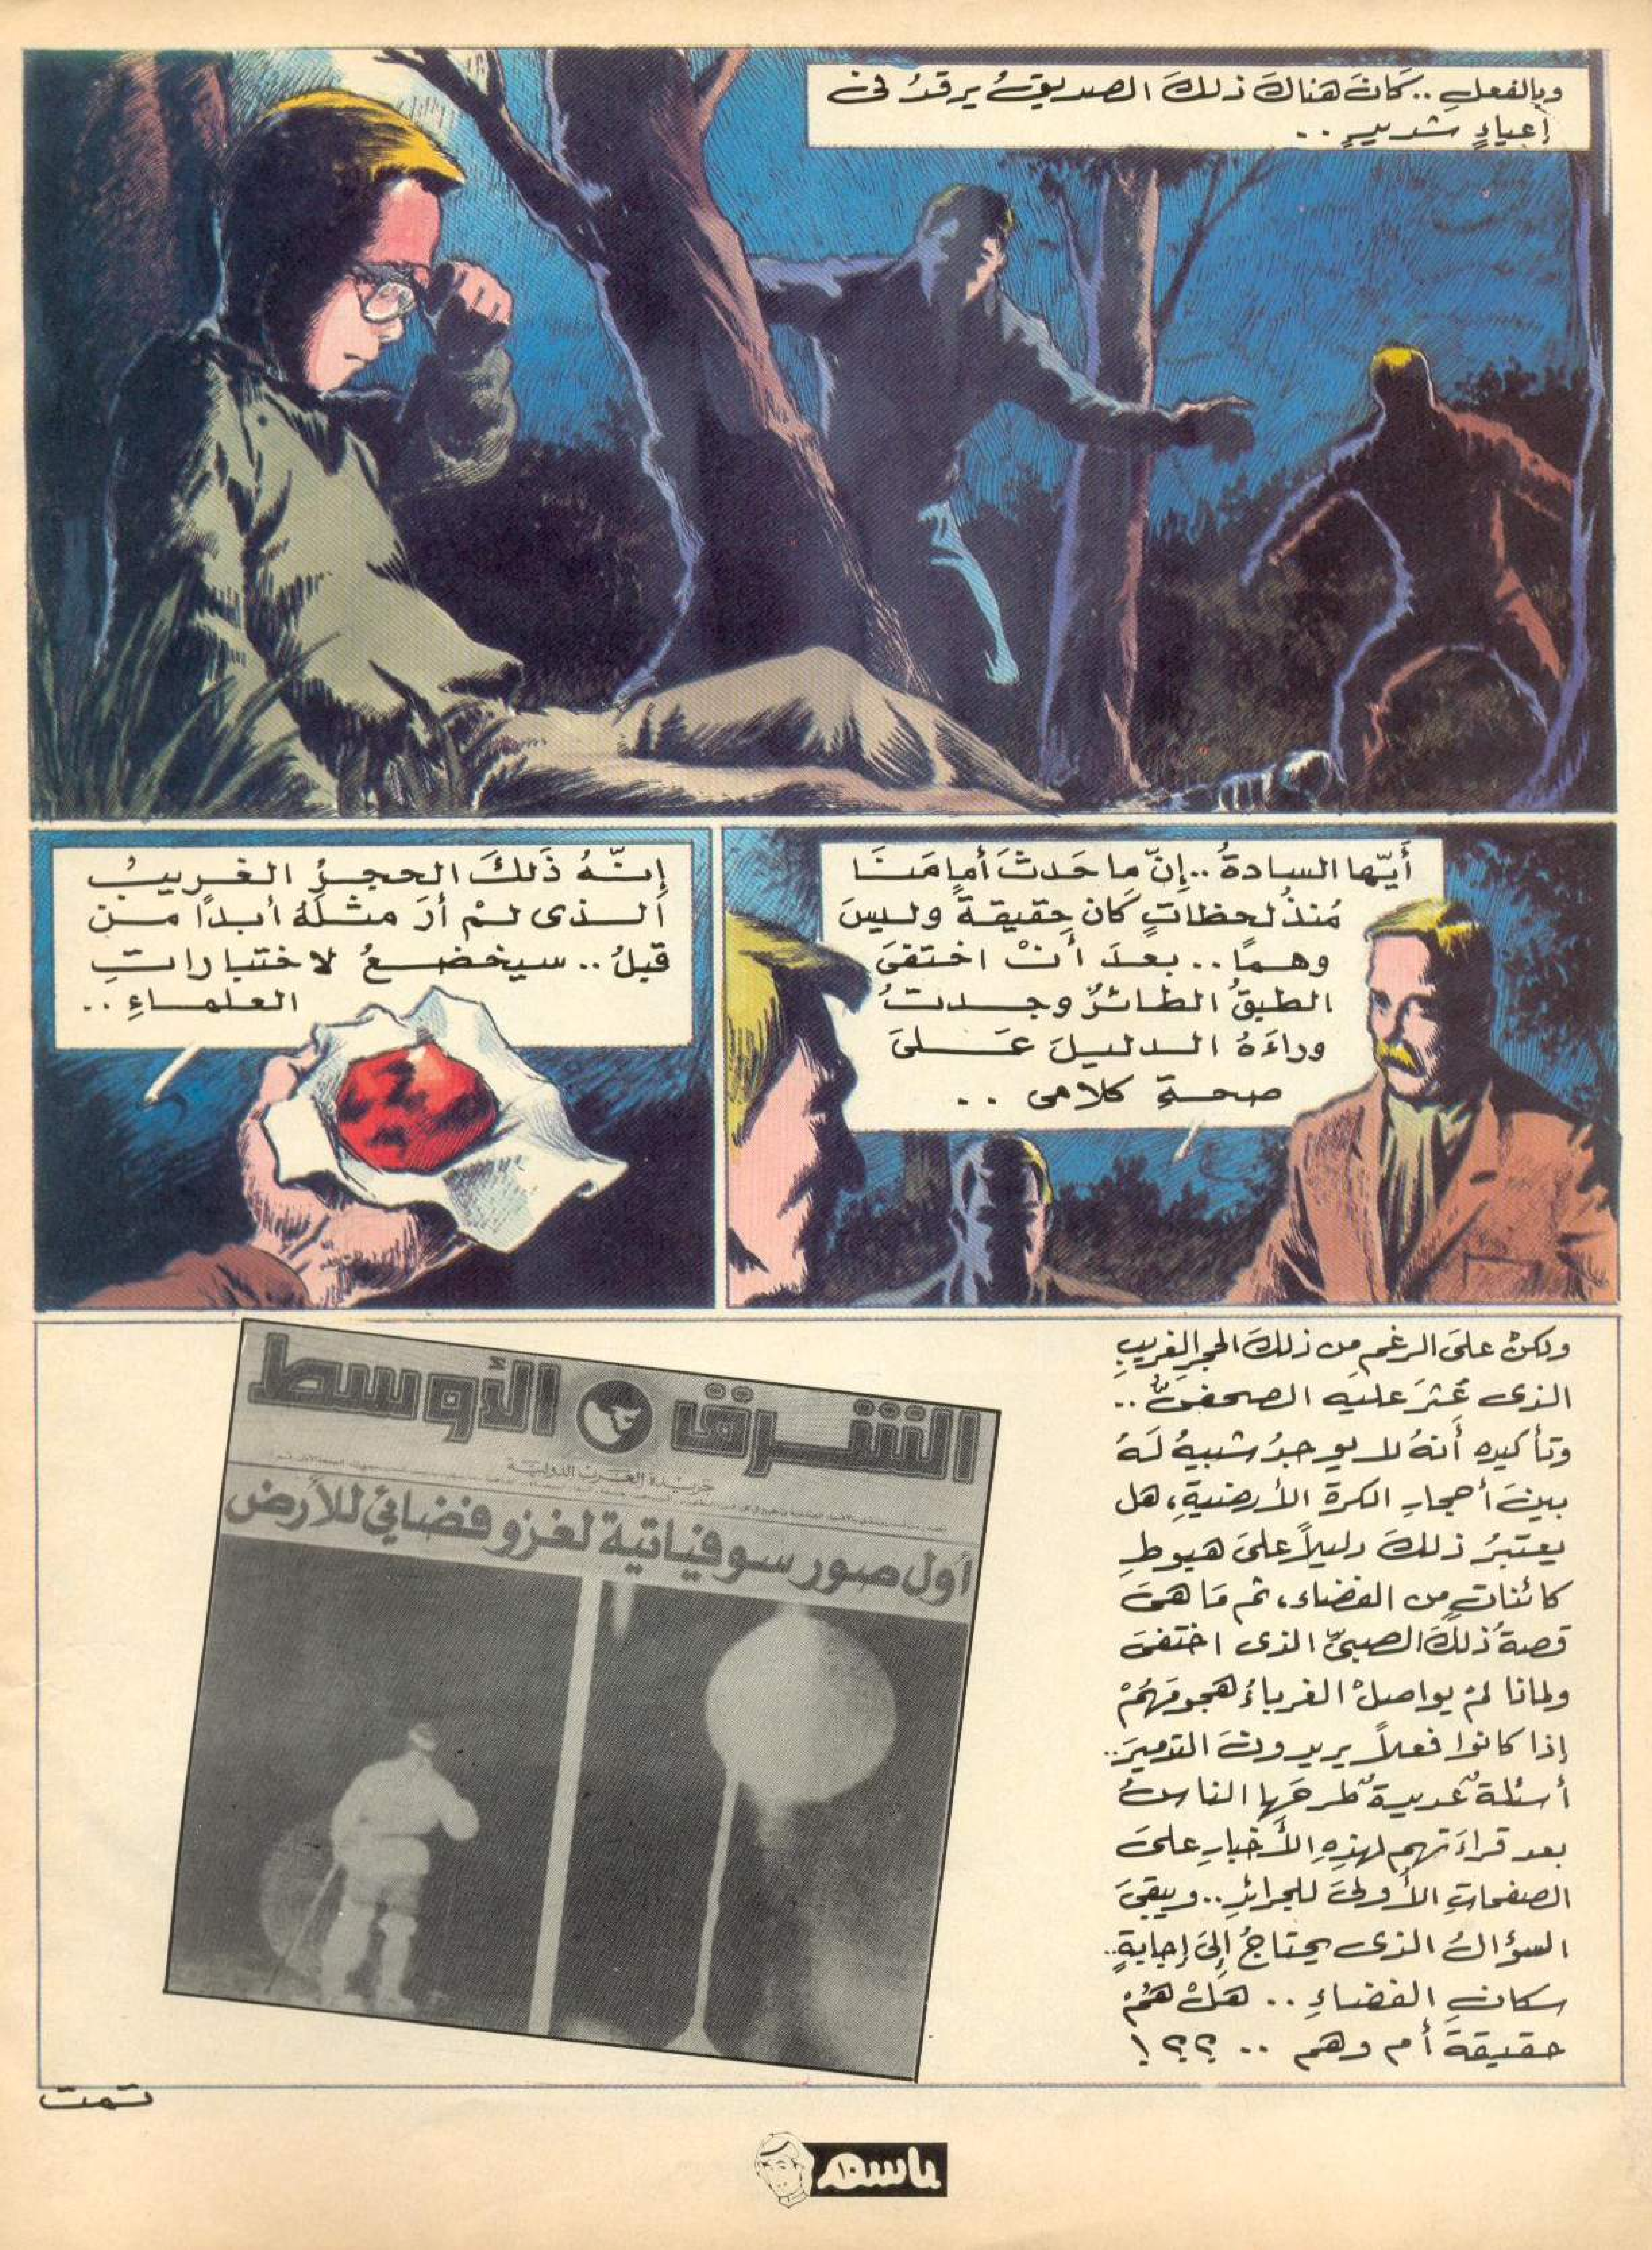 وبالفعلِ .. كَانَ هناكَ ذلكَ الصديقُ يرقدُ فى
إعياءٍ شديدٍ ..
أَيّها السادةُ .. إنّ ما حَدثَ أمامَنَا
مُنذُ لحظاتٍ كان حقيقةً وليسَ
وهمًا .. بعدَ أنْ اختفىَ
الطبقُ الطائرُ وجدتُ
وراءَهُ الدليلَ عَلىَ
صحةِ كلامى ..
إنّهُ ذَلكَ الحجرُ الغريبُ
الذى لمْ أرَ مثلَهُ أبدًا من
قبلُ .. سيخضعُ لاختباراتِ
العلماءِ ..
ولكنْ علىَ الرغمِ من ذلكَ الحجرِ الغريبِ
الذى عُثرَ عليه الصحفىُّ ..
وتأكيدِه أنهُ لا يوجدُ شبيهُ لَهُ
بينَ أحجارِ الكرةِ الأرضيةِ، هل
يعتبرُ ذلكَ دليلاً علىَ هبوطِ
كائناتٍ من الفضاء، ثم مَا هىَ
قصةُ ذلكَ الصبىِّ الذى اختفىَ
ولماذا لمْ يواصلْ الغرباءُ هجومَهُمْ
إذا كانوا فعلاً يريدونَ التدميرَ ..
أسئلةٌ عديدةٌ طرحَها الناسُ
بعد قراءَتهم لهذِهِ الأخبارِ علىَ
الصفحاتِ الأُولىَ للجرائدِ .. ويبقىَ
السؤالُ الذى يحتاجُ إلىَ إجابةٍ ..
سكانُ الفضاءِ .. هَلْ هُمْ
حقيقةً أم وهم .. ؟؟!
الشرق الأوسط
جريدة العرب الدولية
أول صور سوفياتية لغزو فضائي للأرض
تمت
باسم